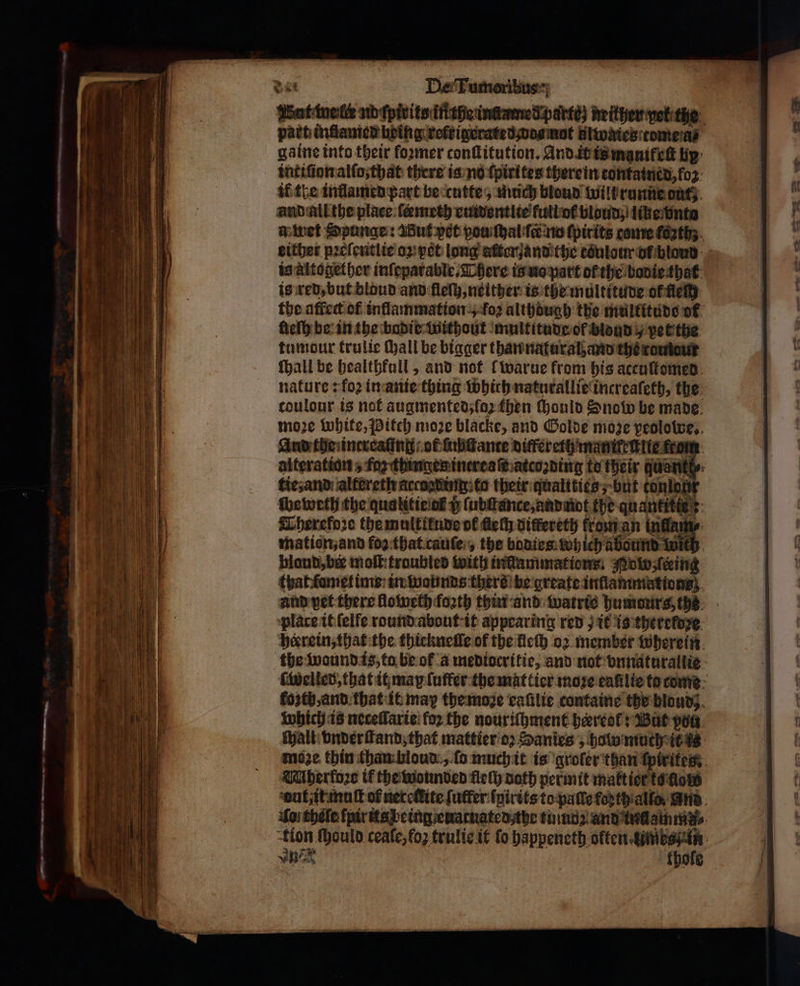 De Tumoribus
But we see no spirits in the inflamed parte; neither yet the
part inflamed being refrigerated, doe not alwaies come as
gaine into their former constitution. And it is manifest by
intision also, that there is no spirites therein contained, for
if the inflamed part be cutte, much bloud will runne out,
and all the place seemeth euidentlie full of bloud, like vnto
a wet Spunge: But yet you shal see no spirits come forth,
either presentlie or yet long after, and the coulour of bloud
is altogether inseparable. There is no part of the bodie that
is red, but bloud and flesh, neither is the multitude of flesh
the affect of inflammation, for although the multitude of
flesh be in the bodie without multitude of bloud, yet the
tumour trulie shall be bigger than natural, and the coulour
shall be healthfull, and not swarue from his accustomed
nature: for in anie thing which naturallie increaseth, the
coulour is not augmented, for then should Snow be made
more white, Pitch more blacke, and Golde more yeolowe.
And the increasing of substance differeth manifestlie from
alteration, for thinges increase according to their quanti-
tie, and altereth according to their qualities, but coulour
sheweth the qualitie of þ substance, and not the quantitie:
Therefore the multitude of flesh differeth from an inflam-
mation, and for that cause, the bodies which abound with
bloud, bee most troubled with inflammations. Now, seeing
that sometime in wounds there be greate inflammations,
and yet there floweth forth thin and watrie humours, the
place it selfe round about it appearing red; it is therefore
herein, that the thicknesse of the flesh or member wherein
the wound is, to be of a mediocritie, and not vnnaturallie
swelled, that it may suffer the mattier more easilie to come
forth, and that it may the more easilie containe the bloud,
which is necessarie for the nourishment hereof: But you
shall vnderstand, that mattier or Sanies, how much it is
more thin than bloud, so much it is groser than spirites,
Wherfore if the wounded flesh doth permit mattier to flow
out, it must of necessite suffer spirits to passe forth also. And
so these spirits being euacuated, the tumor and inflamma-
tion should cease, for trulie it so happeneth often times, in
those